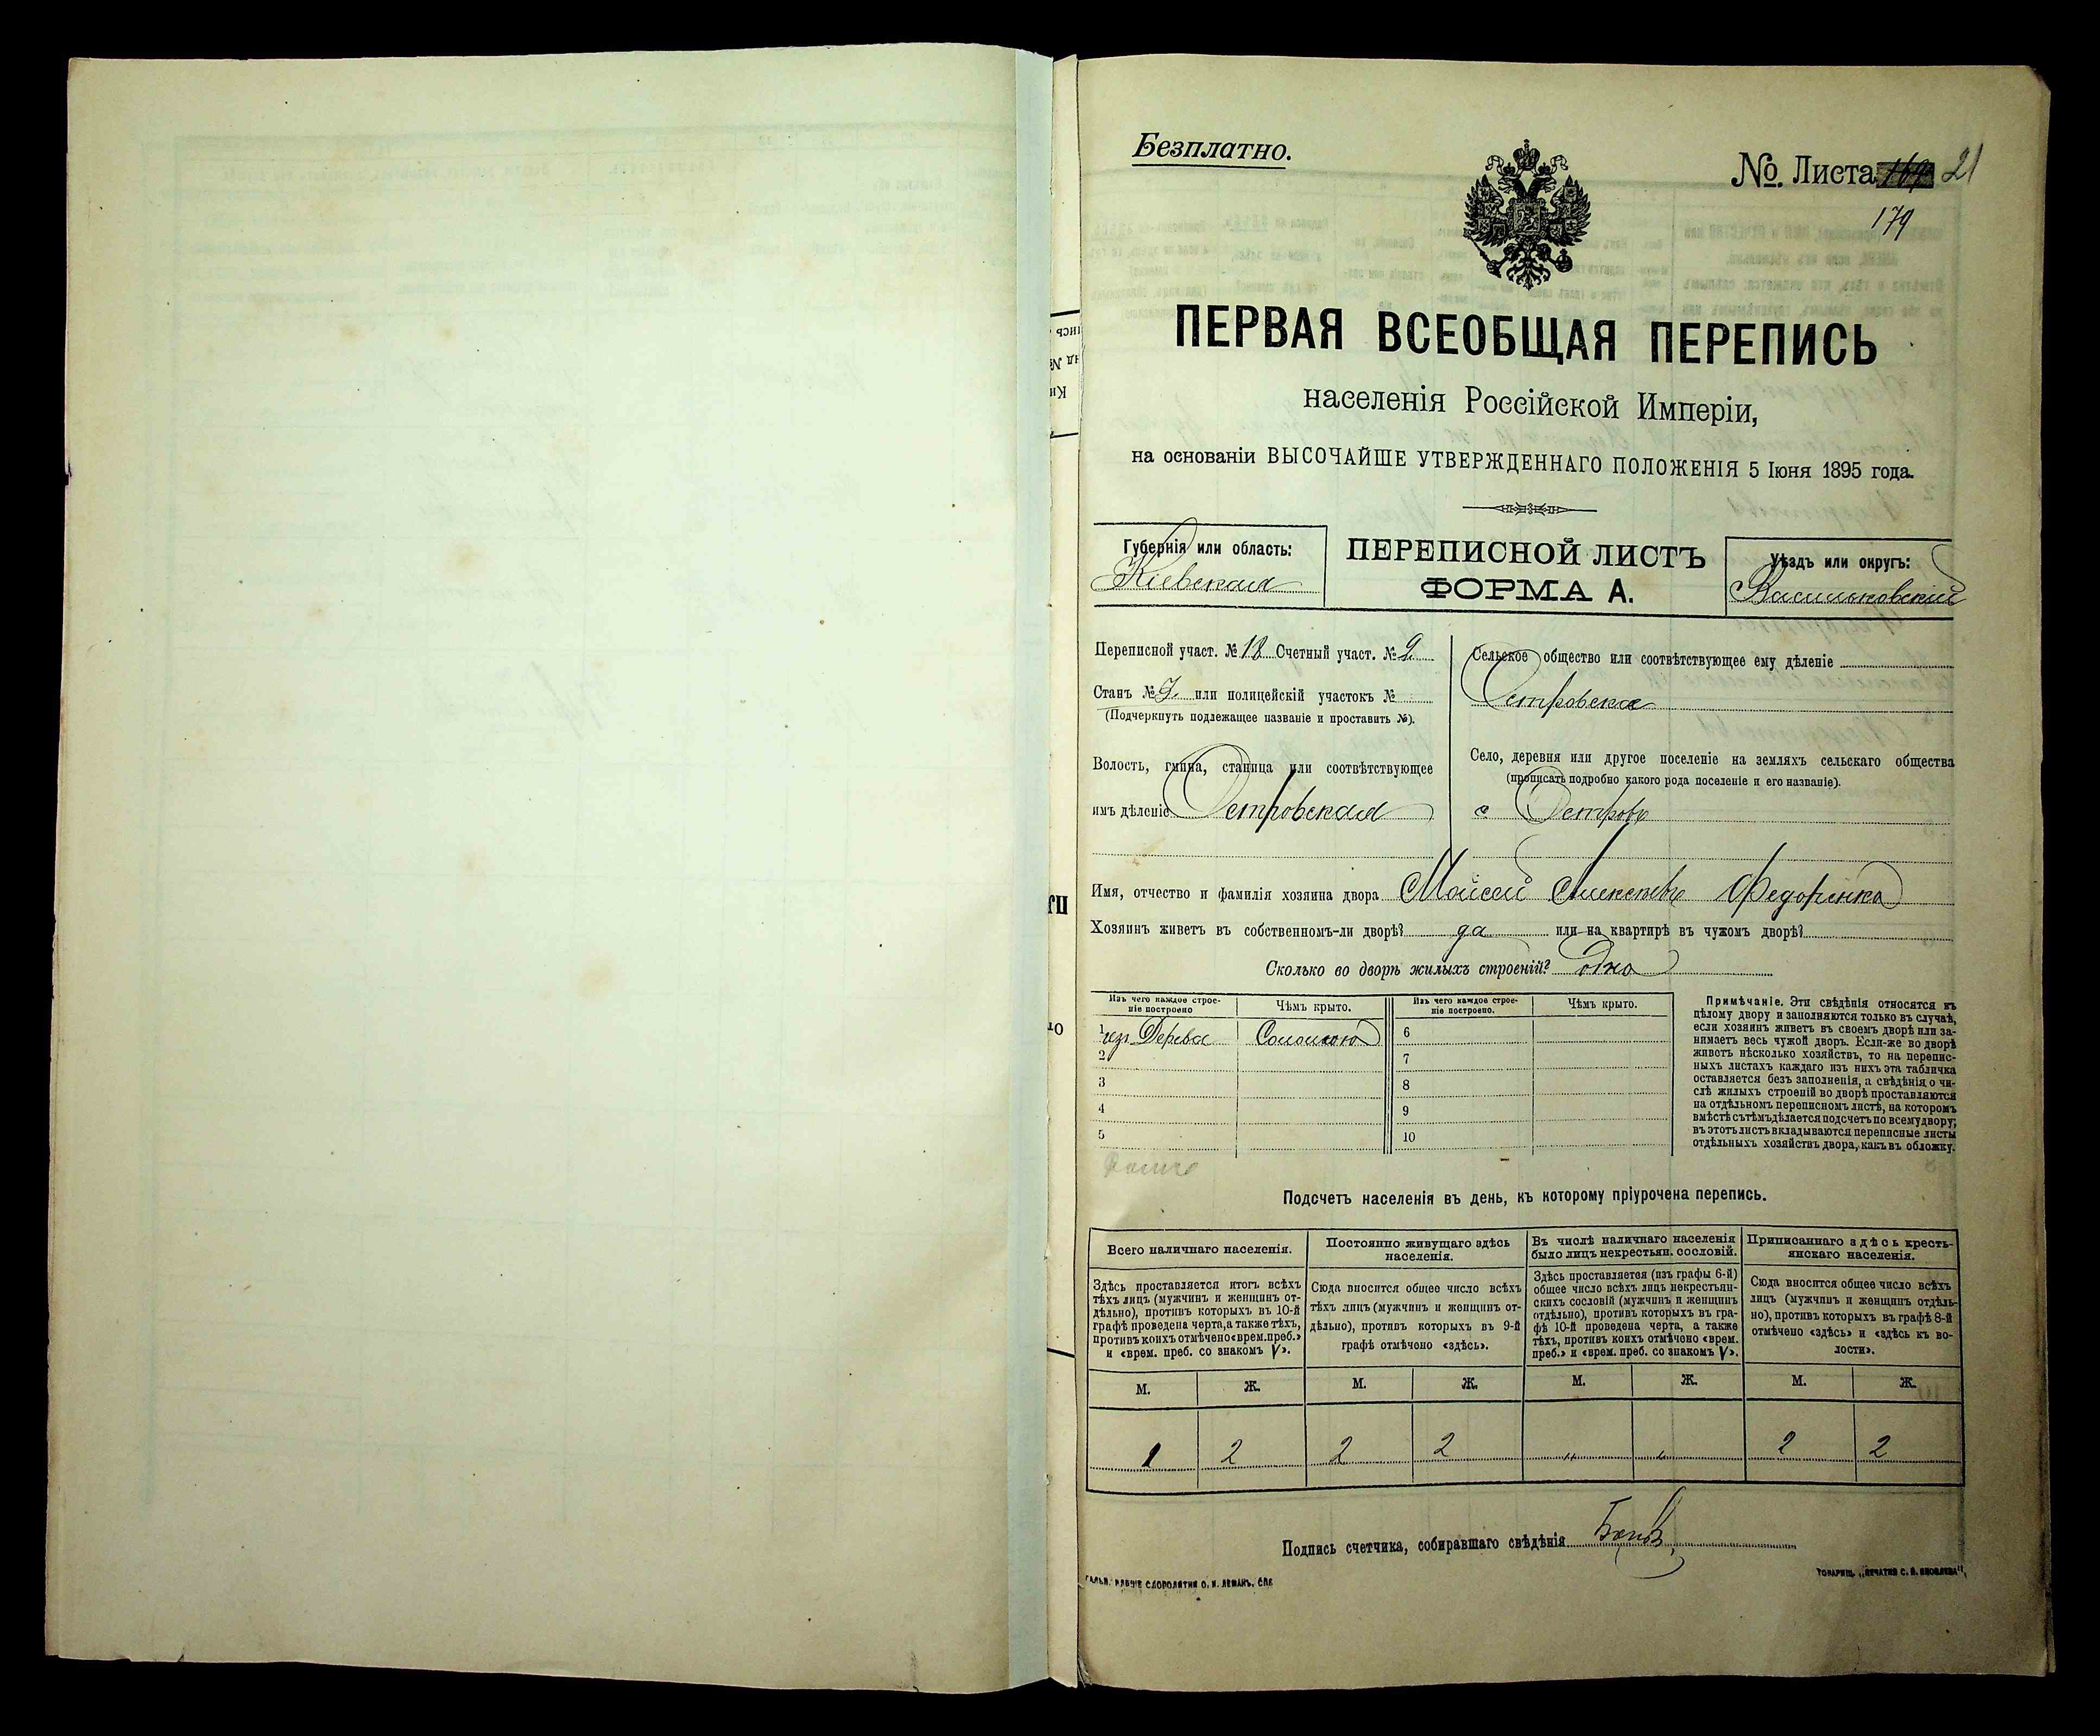 Безплатно.
№. Листа 21
179
ПЕРВАЯ ВСЕОБЩАЯ ПЕРЕПИСЬ
населенія Россійской Имперіи,
на основаніи ВЫСОЧАЙШЕ УТВЕРЖДЕННАГО ПОЛОЖЕНІЯ 5 Іюня 1895 года.
Губернія или область:
Кіевская
ПЕРЕПИСНОЙ ЛИСТЪ
ФОРМА А.
Уѣздъ или округъ:
Васильковскій
Переписной участ. № 18 Счетный участ. № 2
Станъ № 3 или полицейскій участокъ №
(Подчеркнуть подлежащее названіе и проставить №).
Волость, гмина, станица или соотвѣтствующее
имъ дѣленіе Островская
Сельское общество или соотвѣтствующее ему дѣленіе
Островское
Село, деревня или другое поселеніе на земляхъ сельскаго общества
(прописать подробно какого рода поселеніе и его названіе).
с Островъ
Имя, отчество и фамилія хозяина двора Мойсей Алексѣевъ Федоренко
Хозяинъ живетъ въ собственномъ-ли дворѣ? да или на квартирѣ въ чужомъ дворѣ?
Сколько во дворѣ жилыхъ строеній? одно
Изъ чего каждое строе-
ніе построено
Чѣмъ крыто.
Изъ чего каждое строе-
ніе построено.
Чѣмъ крыто.
1 изъ Дерева Соломою 6
2 7
3 8
4 9
5 10
Примѣчаніе. Эти свѣдѣнія относятся къ
цѣлому двору и заполняются только въ случаѣ,
если хозяинъ живетъ въ своемъ дворѣ или за-
нимаетъ весь чужой дворъ. Если-же во дворѣ
живетъ нѣсколько хозяйствъ, то на перепис-
ныхъ листахъ каждаго изъ нихъ эта табличка
оставляется безъ заполненія, а свѣдѣнія о чи-
слѣ жилыхъ строеній во дворѣ проставляются
на отдѣльномъ переписномъ листѣ, на которомъ
вмѣстѣ съ тѣмъ дѣлается подсчетъ по всему двору;
въ этотъ листъ вкладываются переписные листы
отдѣльныхъ хозяйствъ двора, какъ въ обложку.
Подсчетъ населенія въ день, къ которому пріурочена перепись.
Всего наличнаго населенія.
Здѣсь проставляется итогъ всѣхъ
тѣхъ лицъ (мужчинъ и женщинъ от-
дѣльно), противъ которыхъ въ 10-й
графѣ проведена черта, а также тѣхъ,
противъ коихъ отмѣчено «врем. преб.»
и «врем. преб. со знакомъ V».
Постоянно живущаго здѣсь
населенія.
Сюда вносится общее число всѣхъ
тѣхъ лицъ (мужчинъ и женщинъ от-
дѣльно), противъ которыхъ въ 9-й
графѣ отмѣчено «здѣсь».
Въ числѣ наличнаго населенія
было лицъ некрестьян. сословій.
Здѣсь проставляется (изъ графы 6-й)
общее число всѣхъ лицъ некрестьян-
скихъ сословій (мужчинъ и женщинъ
отдѣльно), противъ которыхъ въ гра-
фѣ 10-й проведена черта, а также
тѣхъ, противъ коихъ отмѣчено «врем.
преб.» и «врем. преб. со знакомъ V».
Приписаннаго здѣсь кресть-
янскаго населенія.
Сюда вносится общее число всѣхъ
лицъ (мужчинъ и женщинъ отдѣль-
но), противъ которыхъ въ графѣ 8-й
отмѣчено «здѣсь» и «здѣсь къ во-
лости».
М. Ж. М. Ж. М. Ж. М. Ж.
1 2 2 2 " " 2 2
Подпись счетчика, собиравшаго свѣдѣнія